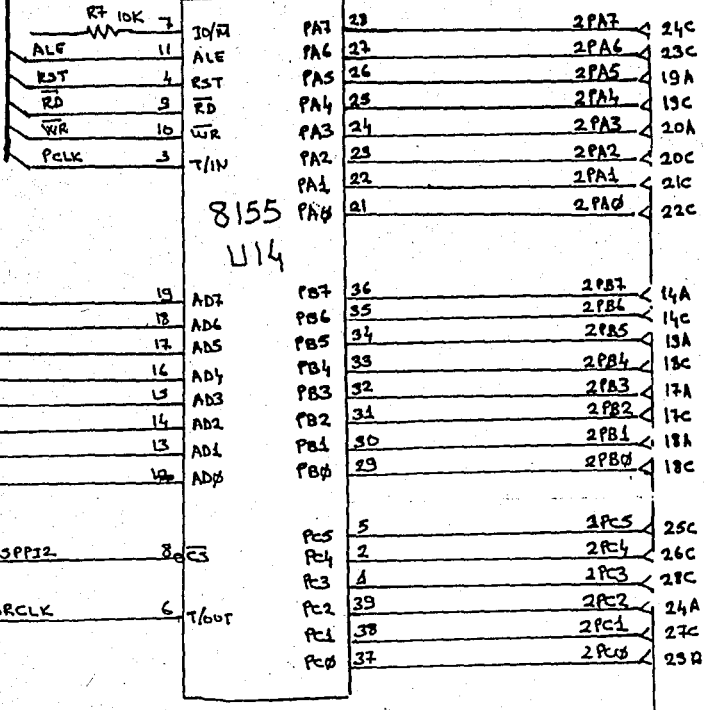 R7 10K 7 IO/M̅ PA7 28 2PA7 24C
ALE 11 ALE PA6 27 2PA6 23C
RST 4 RST PA5 26 2PA5 19A
R̅D̅ 9 R̅D̅ PA4 25 2PA4 19C
W̅R̅ 10 W̅R̅ PA3 24 2PA3 20A
PCLK 3 T/IN PA2 23 2PA2 20C
PA1 22 2PA1 21C
8155 PA0 21 2PA0 22C
U14
19 AD7 PB7 36 2PB7 14A
18 AD6 PB6 35 2PB6 14C
17 AD5 PB5 34 2PB5
16 AD4 PB4 33 2PB4 18C
15 AD3 PB3 32 2PB3 17A
14 AD2 PB2 31 2PB2 17C
13 AD1 PB1 30 2PB1 18A
12 AD0 PB0 29 2PB0 18C
PC5 5 2PC5 25C
SPPI2 8 C̅S̅ PC4 2 2PC4 26C
PC3 1 2PC3 28C
RCLK 6 T/OUT PC2 39 2PC2 24A
PC1 38 2PC1 27C
PC0 37 2PC0